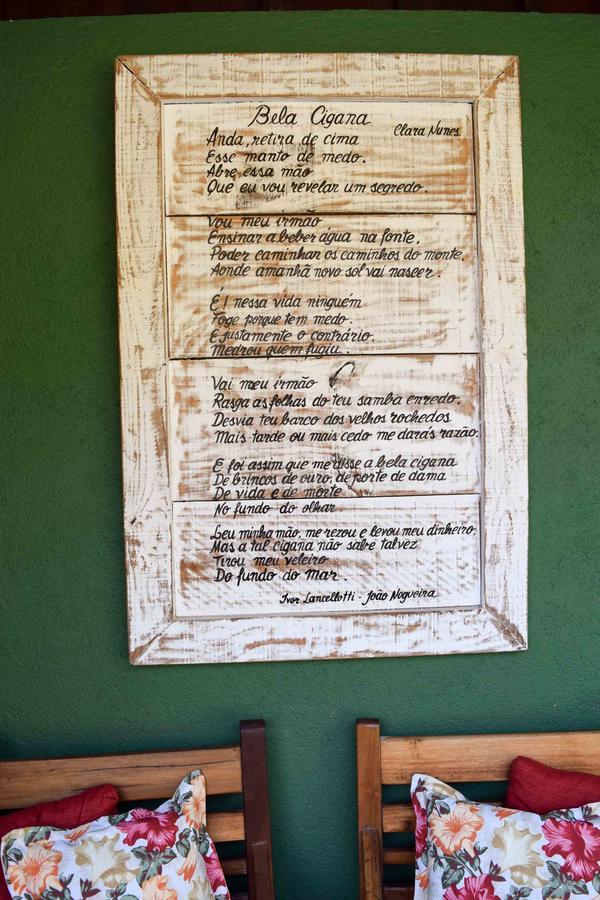 Bela Cigana
Clara Nunes
Anda, retira de cima
Esse manto de medo.
Abre essa mão
Que eu vou revelar um segredo.
Vou meu irmão
Ensinar a beber água na fonte.
Poder caminhar os caminhos do monte,
Aonde amanhã novo sol vai nascer.
É! nessa vida ninguém
Foge porque tem medo.
É justamente o contrário.
Medrou quem fugiu.
Vai meu irmão
Rasga as folhas do teu samba enredo,
Desvia teu barco dos velhos rochedos
Mais tarde ou mais cedo me darás razão.
E foi assim que me disse a bela cigana
De brincos de ouro, de porte de dama
De vida e de morte
No fundo do olhar.
Leu minha mão, me rezou e levou meu dinheiro,
Mas a tal cigana não sabe talvez
Tirou meu veleiro
Do fundo do mar.
Ivor Lancellotti - João Nogueira